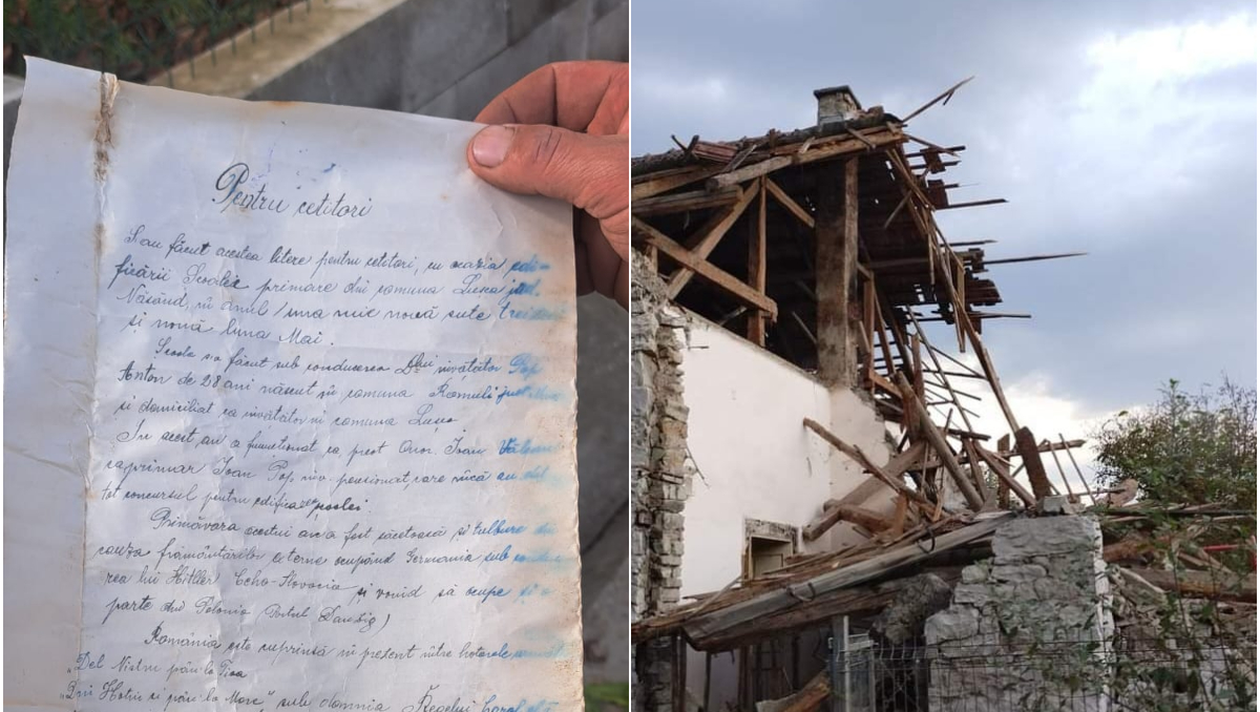 Pentru cetitori
S'au făcut acestea litere pentru cetitori, cu ocazia edi-
ficării Școalei primare din comuna Lușca jud.
Năsăud, în anul una mie nouă sute treizeci
și nouă luna Mai.
Școala s'a făcut sub conducerea Dlui învățător Pop
Anton de 28 ani născut în comuna Romuli jud.
și domiciliat ca învățător în comuna Lușca.
In acest an a funcționat ca preot Onor. Ioan
ca primar Ioan Pop, inv. pensionat, care încă au dat
tot concursul pentru edificarea școalei.
Primăvara acestui an a fost săcetoasă și tulbure din
cauza frământărilor externe ocupând Germania sub conduce-
rea lui Hitller Ceho-Slovacia și voind să ocupe și o
parte din Polonia (Portul Danzig)
România este cuprinsă în present între hotarele
"Del Nistru pân la Tisa
"Din Hotin și pân la Mare" sub domnia Regelui Carol al